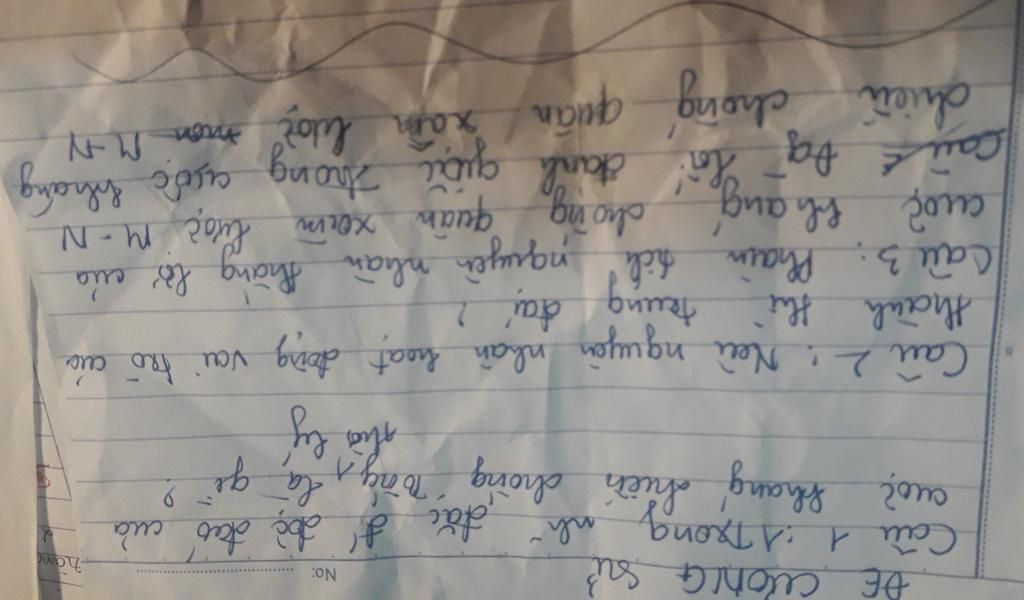 No:
ĐỀ CƯƠNG SỬ
Câu 1: 1 trong nh đặc đ' độc đáo của
cuộc kháng chiến chống Tống 1 là gì?
thời lý
Câu 2: Nêu nguyên nhân hoạt động vai trò của
thành thi trung đại?
Câu 3: Phân tích nguyên nhân thắng lợi của
cuộc kháng chống quân xâm lược M-N
Câu Đg lối đánh giặc trong cuộc kháng
chiến chống quân xâm lược M-N